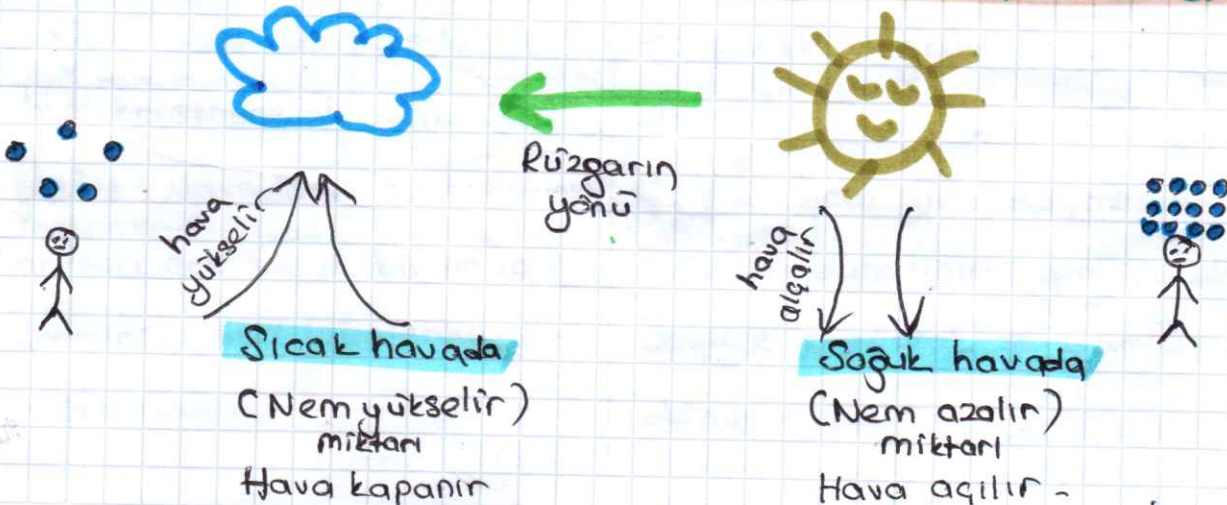 Rüzgarın
yönü
hava
yükselir
hava
alçalır
Sıcak havada
(Nem yükselir)
miktarı
Hava kapanır
Soğuk havada
(Nem azalır)
miktarı
Hava açılır -